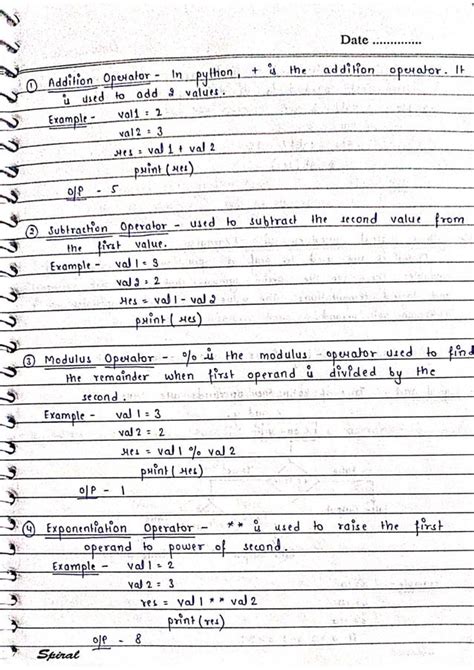 Date ..............
① Addition Operator - In python, + is the addition operator. It
is used to add 2 values.
Example - val1 = 2
val2 = 3
res = val1 + val2
print (res)
O/P - 5
② Subtraction Operator - used to subtract the second value from
the first value.
Example - val1 = 3
val2 = 2
res = val1 - val2
print (res)
③ Modulus Operator - % is the modulus operator used to find
the remainder when first operand is divided by the
second.
Example - val1 = 3
val2 = 2
res = val1 % val2
print (res)
O/P - 1
④ Exponentiation Operator - ** is used to raise the first
operand to power of second.
Example - val1 = 2
val2 = 3
res = val1 ** val2
print (res)
O/P - 8
Spiral